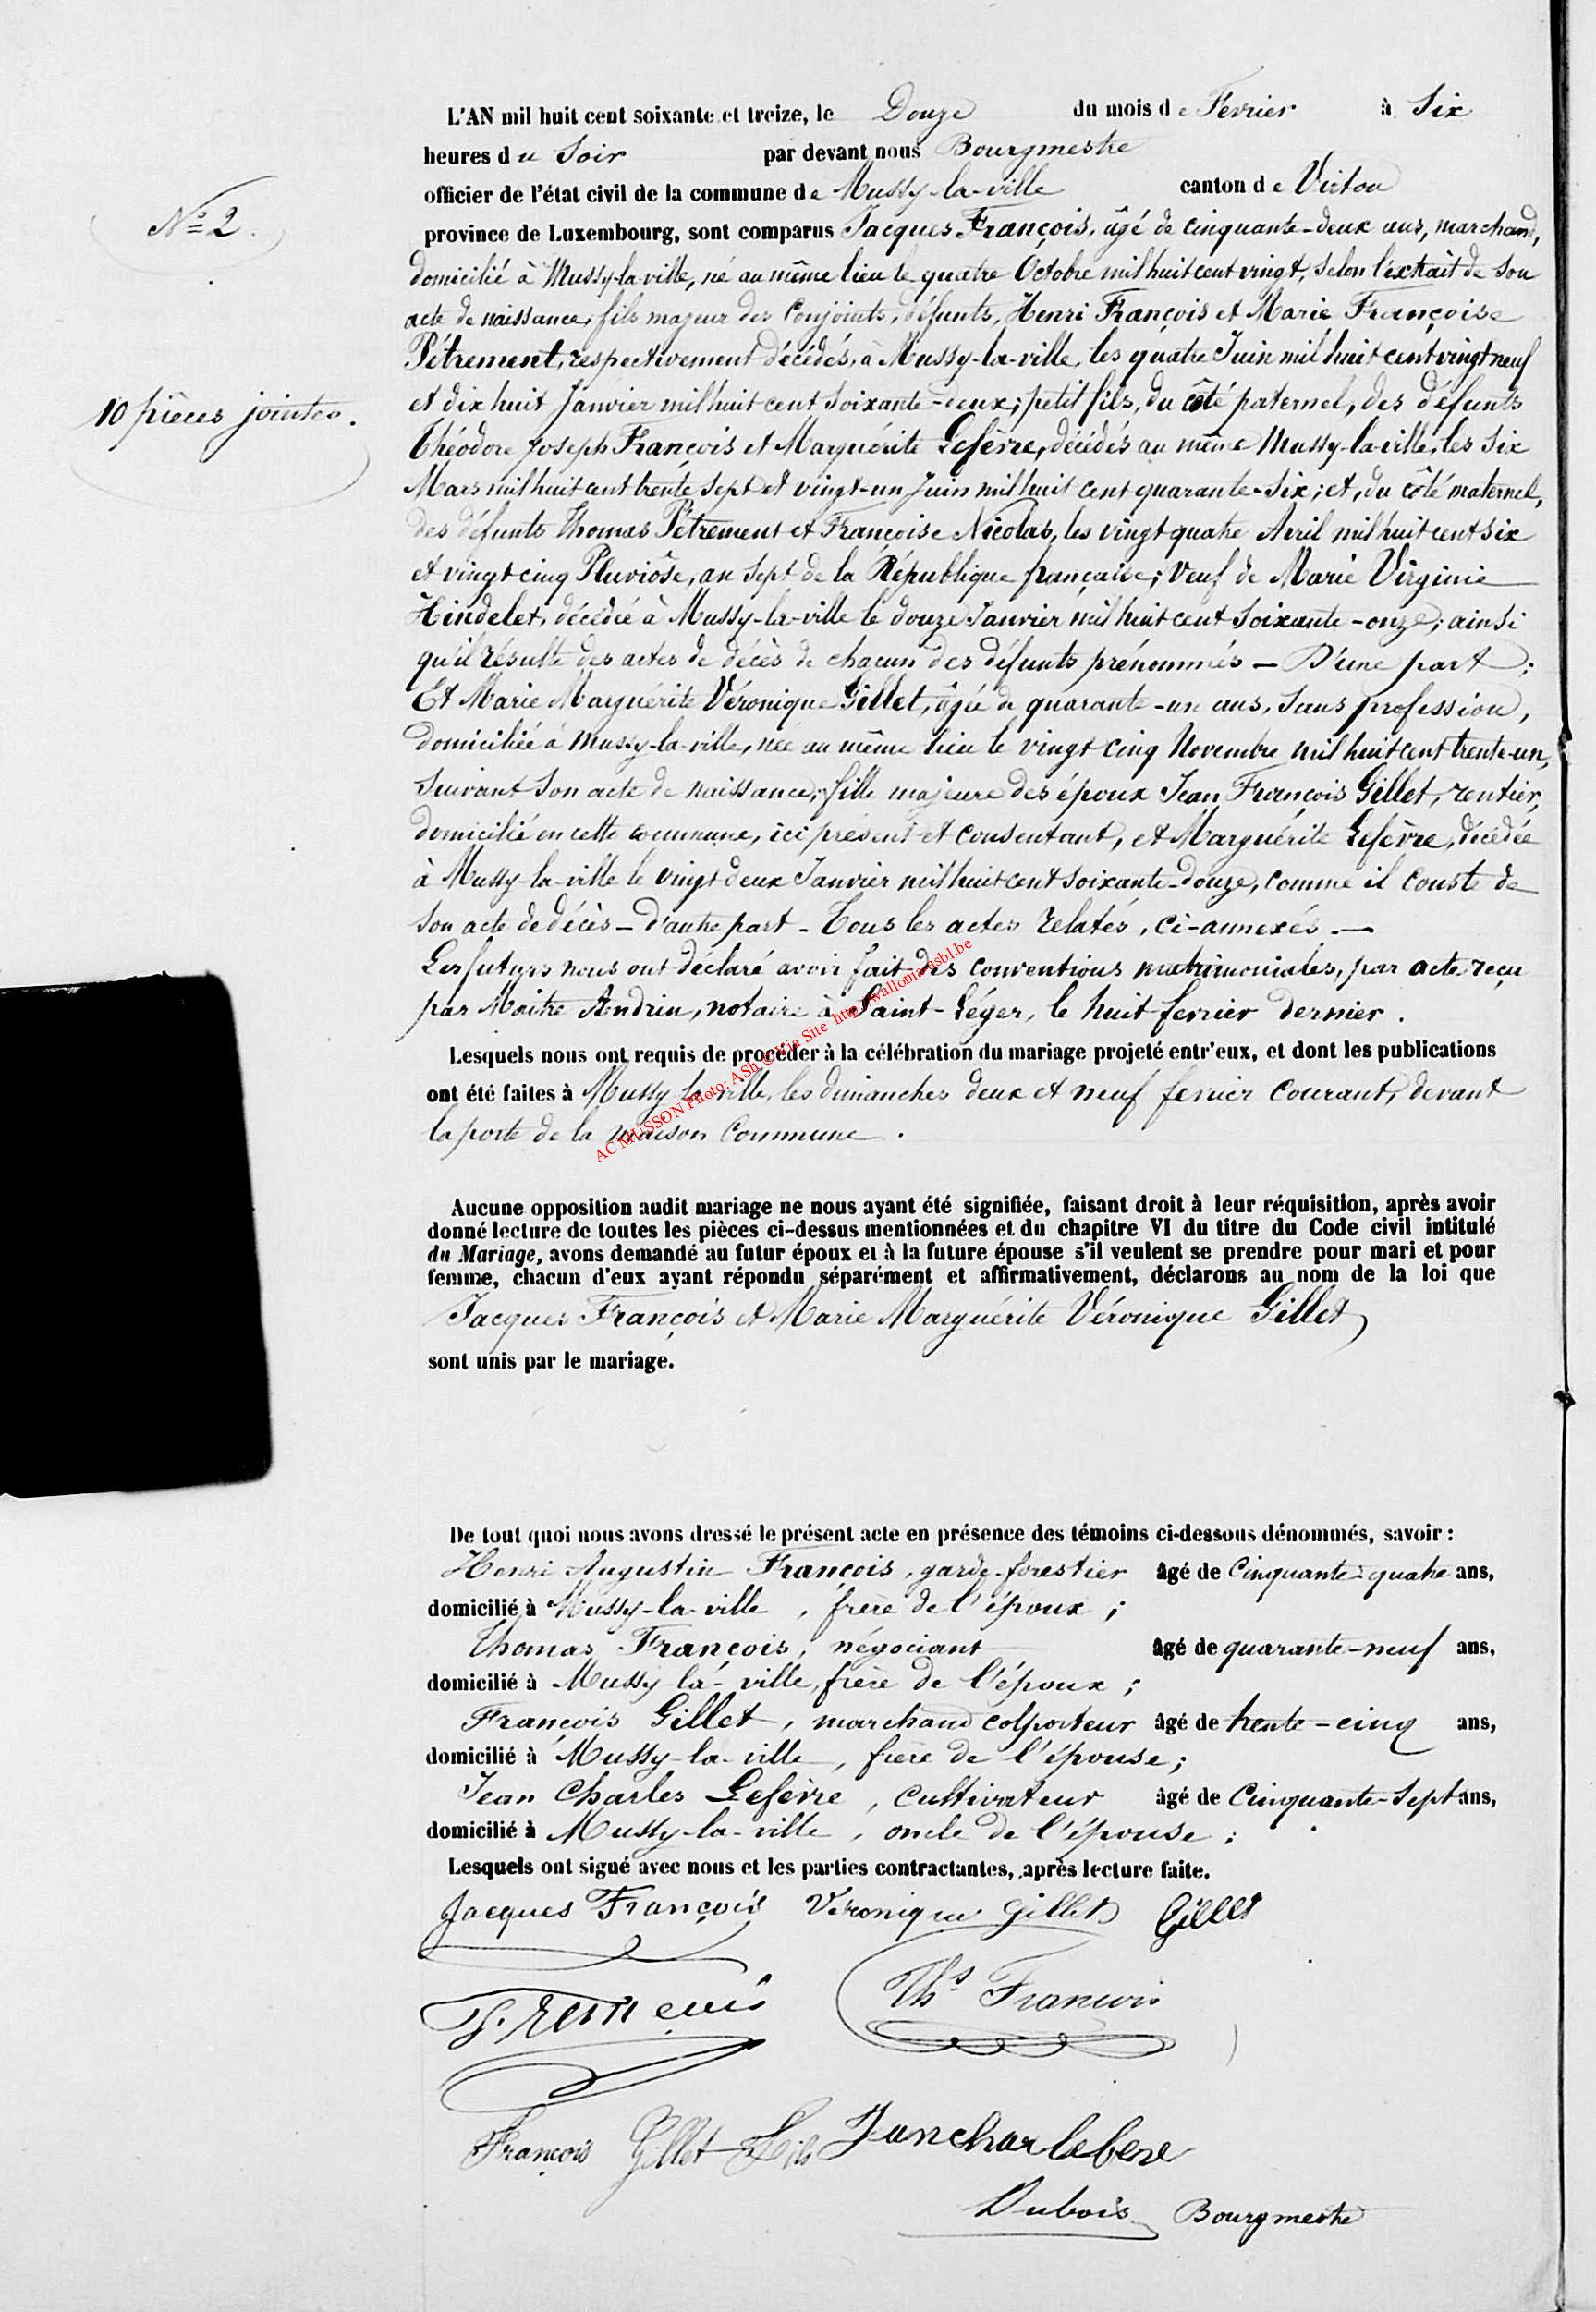 L'AN mil huit cent soixante et treize, le Douze du mois de Fevrier à Six
heures du Soir par devant nous Bourgmestre
officier de l'état civil de la commune de Mussy-la-ville canton de Virton
N° 2.
province de Luxembourg, sont comparus Jacques François, âgé de cinquante-deux ans, marchand,
domicilié à Mussy-la-ville, né au même lieu le quatre Octobre mil huit cent vingt, selon l'extrait de son
acte de naissance, fils majeur des Conjoints, défunts, Henri François et Marie Françoise
Pétrement, respectivement décédés, à Mussy-la-ville, les quatre Juin mil huit cent vingt neuf
10 pièces jointes.
et dix huit Janvier mil huit cent soixante-deux; petit fils, du côté paternel, des défunts
Théodore Joseph François et Marguérite Lefèvre, décédés au même Mussy-la-ville, les six
Mars mil huit cent trente sept et vingt-un Juin mil huit cent quarante-six; et, du côté maternel,
des défunts Thomas Pétrement et Françoise Nicolas, les vingt quatre Avril mil huit cent six
et vingt cinq Pluviôse, an sept de la République française; Veuf de Marie Virginie
Hindelet, décédée à Mussy-la-ville le douze Janvier mil huit cent soixante-onze; ainsi
qu'il résulte des actes de décès de chacun des défunts prénommés — D'une part;
Et Marie Marguérite Véronique Gillet, âgée de quarante-un ans, sans profession,
domiciliée à Mussy-la-ville, née au même lieu le vingt cinq Novembre mil huit cent trente-un,
suivant son acte de naissance; fille majeure des époux Jean François Gillet, rentier,
domicilié en cette commune, ici présent et consentant, et Marguérite Lefèvre, décédée
à Mussy-la-ville le vingt deux Janvier mil huit cent soixante-douze, comme il conste de
son acte de décès — d'autre part - Tous les actes relatés, ci-annexés. —
Les futurs nous ont déclaré avoir fait des conventions matrimoniales, par acte reçu
par Maître Andrin, notaire à Saint-Léger, le huit fevrier dernier.
Lesquels nous ont requis de procéder à la célébration du mariage projeté entr'eux, et dont les publications
ont été faites à Mussy la ville, les dimanches deux et neuf fevrier courant, devant
la porte de la maison Commune.
AC MUSSON Photo: ASh © Via Site http://wallonia-asbl.be
Aucune opposition audit mariage ne nous ayant été signifiée, faisant droit à leur réquisition, après avoir
donné lecture de toutes les pièces ci-dessus mentionnées et du chapitre VI du titre du Code civil intitulé
du Mariage, avons demandé au futur époux et à la future épouse s'il veulent se prendre pour mari et pour
femme, chacun d'eux ayant répondu séparément et affirmativement, déclarons au nom de la loi que
Jacques François et Marie Marguérite Véronique Gillet
sont unis par le mariage.
De tout quoi nous avons dressé le présent acte en présence des témoins ci-dessous dénommés, savoir :
Henri Augustin François, garde-forestier âgé de Cinquante-quatre ans,
domicilié à Mussy-la-ville, frère de l'époux;
Thomas François, négociant âgé de quarante-neuf ans,
domicilié à Mussy-la-ville, frère de l'époux;
François Gillet, marchand colporteur âgé de trente-cinq ans,
domicilié à Mussy-la-ville, frère de l'épouse;
Jean Charles Lefèvre, cultivateur âgé de Cinquante-Sept ans,
domicilié à Mussy-la-ville, oncle de l'épouse;
Lesquels ont signé avec nous et les parties contractantes, après lecture faite.
Jacques François Véronique Gillet Gillet
Ths François
François Gillet Fils
Dubois Bourgmestre